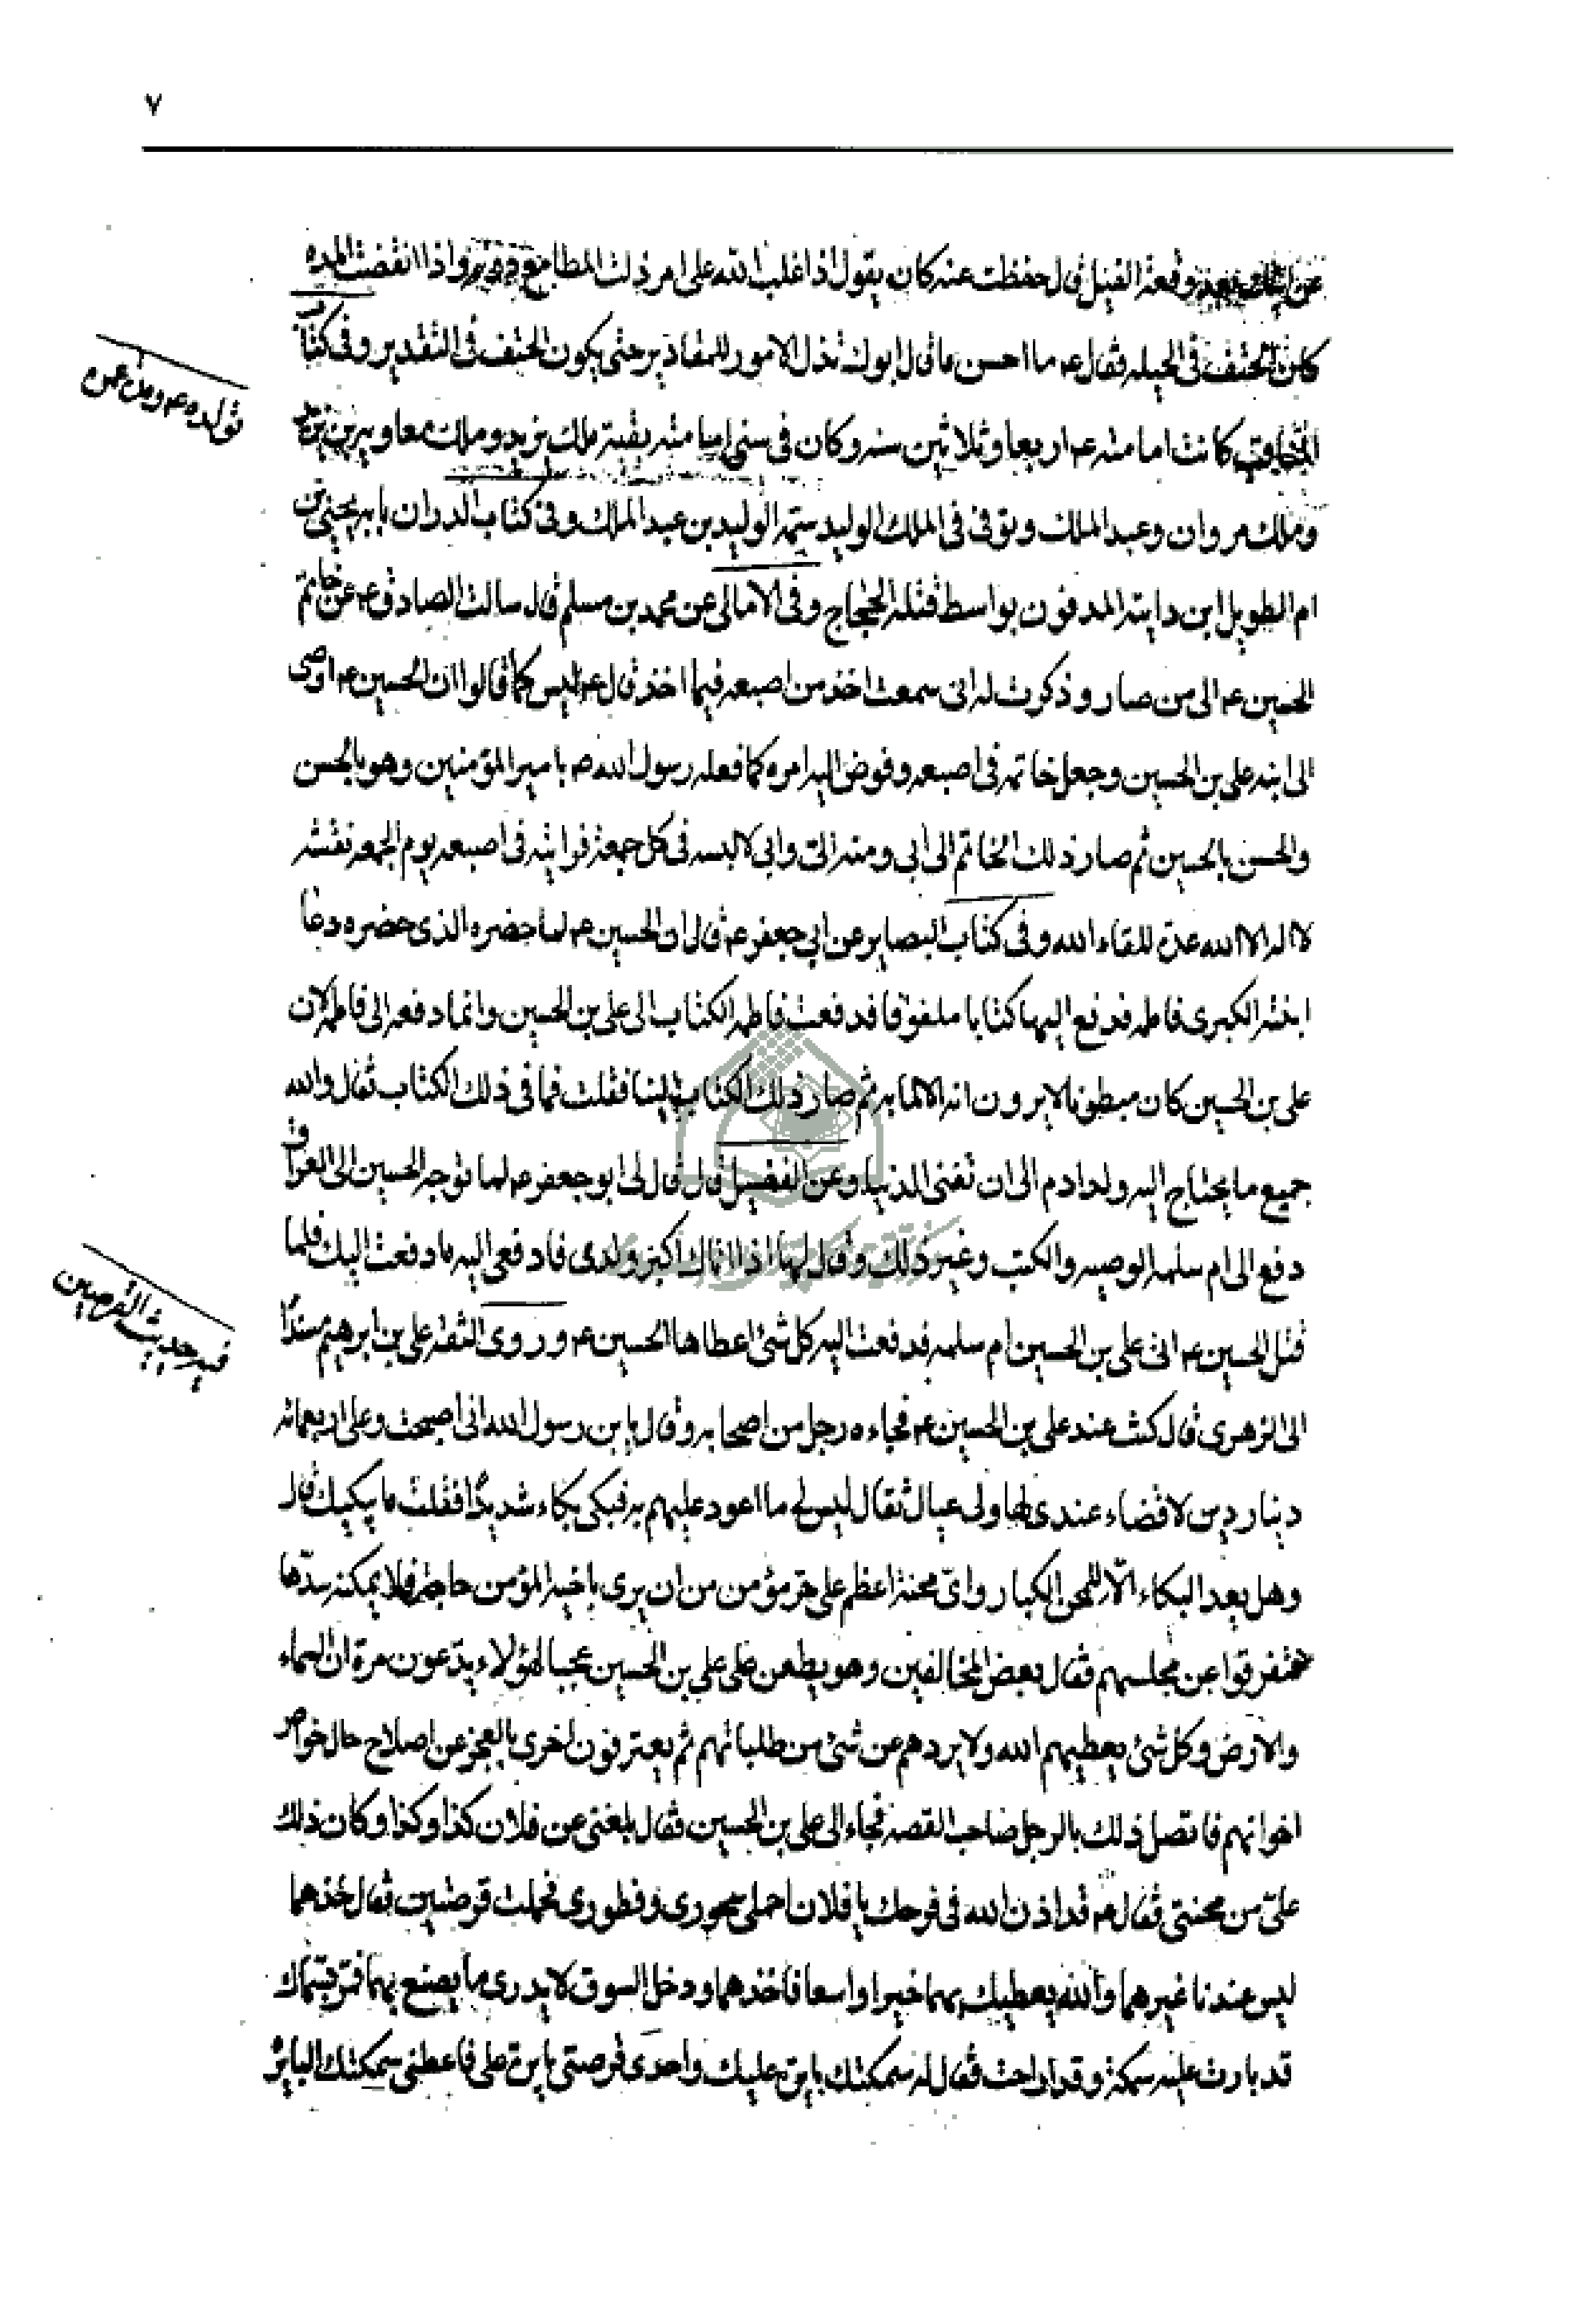 ٧
وقعة الفيل قال حفظت عنه كان يقول اذا غلب الله على امر ذلت المطامع دونه واذا انقضت المده
كان الحتف فى الحيله فقال ع ما احسن ما قال ابوك تذل الامور للمقادير حتى يكون الحتف فى التقدير وفى كتاب
كانت امامته ع اربعا وثلاثين سنه وكان فى سنى امامته بقية ملك يزيد وملك معاوية بن يزيد
وملك مروان وعبد الملك وتوفى فى الملك الوليد ستمه الوليد بن عبد الملك وفى كتاب الدر ان بابه يحيى بن
ام الطويل ابن دايته المدفون بواسط قتله الحجاج وفى الامالى عن محمد بن مسلم قال سالت الصادق ع عن خاتم
الحسين ع الى من صار وذكرت له انى سمعت اخذ من اصبعه فيما اخذ قال ع ليس كما قالوا ان الحسين ع اوصى
الى ابنه على بن الحسين وجعل خاتمه فى اصبعه وفوض اليه امره كما فعله رسول الله ص بامير المؤمنين وهو بالحسن
والحسن بالحسين ثم صار ذلك الخاتم الى ابى ومنه الىّ وانى لالبسه فى كل جمعة فرايته فى اصبعه يوم الجمعه نقشه
لا اله الا الله عدة للقاء الله وفى كتاب البصاير عن ابى جعفر ع قال ان الحسين ع لما حضره الذى حضره دعا
ابنته الكبرى فاطمه فدفع اليها كتابا ملفوفا فدفعت فاطمه الكتاب الى على بن الحسين وانما دفعه الى فاطمه لان
على بن الحسين كان مبطونا لا يرون انه الا لما به ثم صار ذلك الكتاب الينا فقلت فما فى ذلك الكتاب فقال والله
جميع ما يحتاج اليه ولد ادم الى ان تفنى الدنيا وعن الفضيل قال قال لى ابو جعفر ع لما توجه الحسين الى العراق
دفع الى ام سلمه الوصيه والكتب وغير ذلك وقال لها اذا اتاك اكبر ولدى فادفعى اليه ما دفعت اليك فلما
قتل الحسين ع اتى على بن الحسين ام سلمه فدفعت اليه كل شئ اعطاها الحسين ع وروى الثقة على بن ابرهيم مسندًا
الى الزهرى قال كنت عند على بن الحسين ع فجاءه رجل من اصحابه وقال يا بن رسول الله انى اصبحت وعلى اربعمائه
دينار دين لا قضاء عندى لها ولى عيال ثقال ليس لى ما اعود عليهم به فبكى بكاء شديدًا فقلت ما يبكيك قال
وهل يعد البكاء الّا للمحن الكبار واىّ محنة اعظم على حر مؤمن من ان يرى باخيه المؤمن حاجة فلا يمكنه سدّها
فتفرقوا عن مجلسهم فقال بعض المخالفين وهو يطعن على على بن الحسين عجبا لهؤلاء يدّعون مرة ان السماء
والارض وكل شئ يعطيهم الله ولا يردهم عن شئ من طلباتهم ثم يعترفون اخرى بالعجز عن اصلاح حال خواص
اخوانهم فاتصل ذلك بالرجل صاحب القصه فجاء الى على بن الحسين فقال بلغنى عن فلان كذا وكذا وكان ذلك
علىّ من محنتى فقال ع قد اذن الله فى فرجك يا فلان احملى سحورى وفطورى فحملت قرصتين فقال خذهما
ليس عندنا غيرهما والله يعطيك بهما خيرا واسعا فاخذهما ودخل السوق لا يدرى ما يصنع بهما فمرّ بسمّاك
قد بارت عليه سمكة وقد اراحت فقال له سمكتك بايرة عليك واحدى قرصتى بايرة على فاعطنى سمكتك البايرة
تولده ع ومن عمره
فيه حديث القرصين